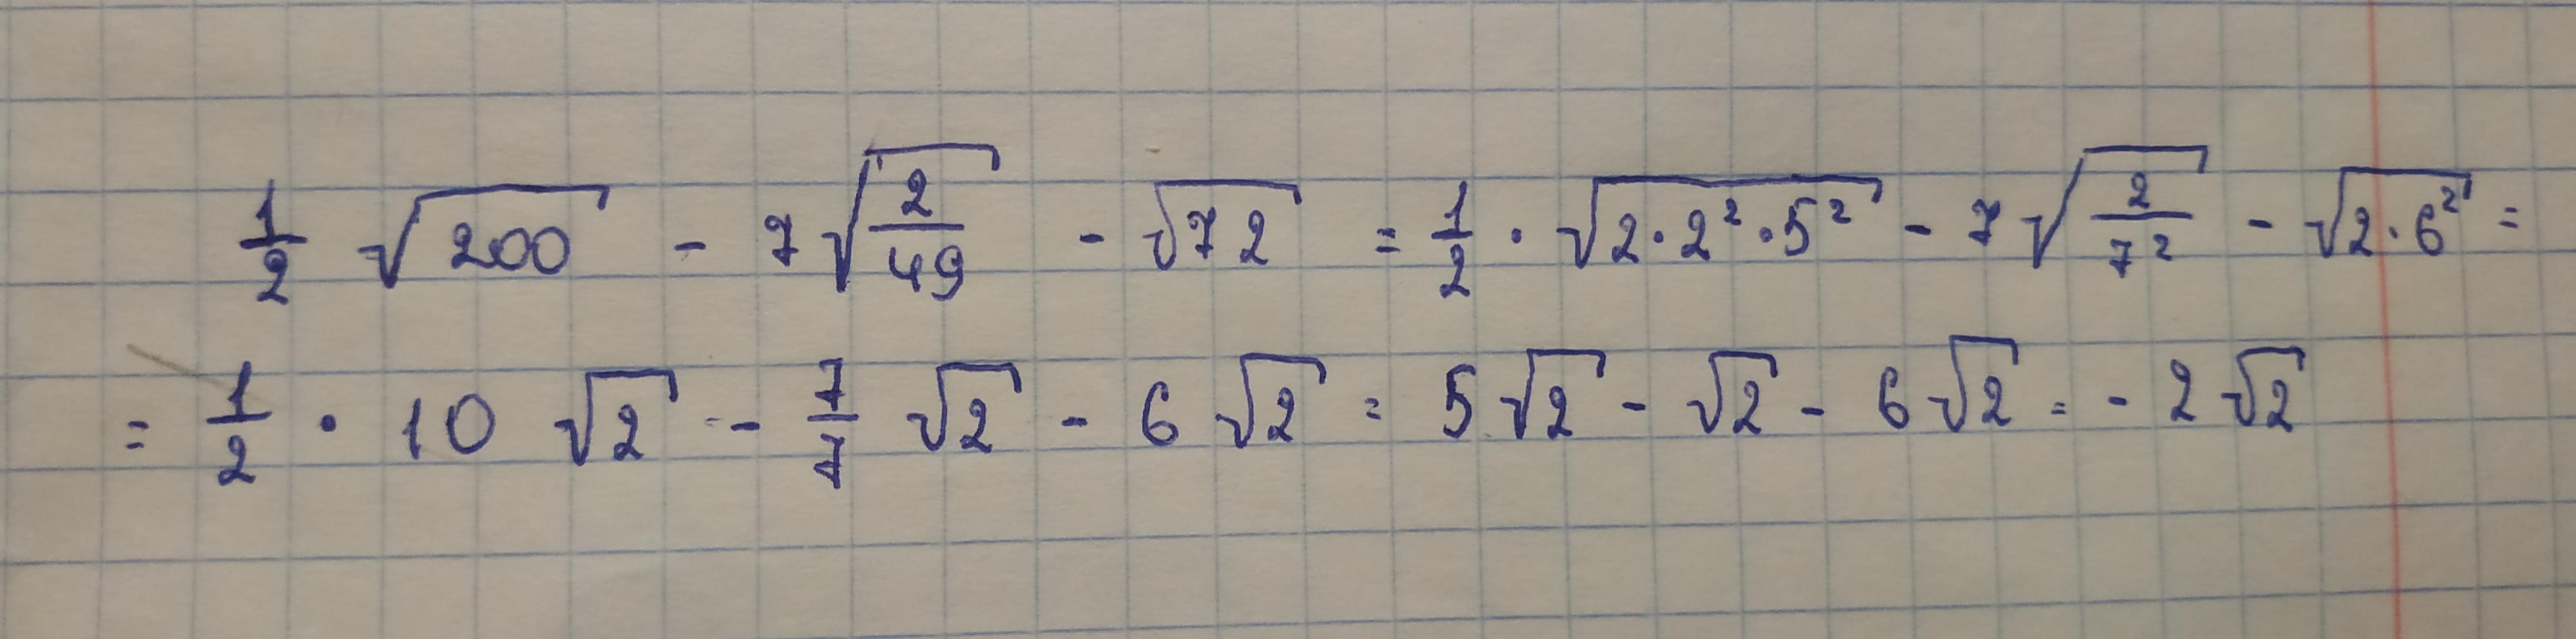 1/2 √200 - 7√(2/49) - √72 = 1/2 · √(2·2²·5²) - 7√(2/7²) - √(2·6²) =
= 1/2 · 10 √2 - 7/7 √2 - 6 √2 = 5√2 - √2 - 6√2 = - 2√2